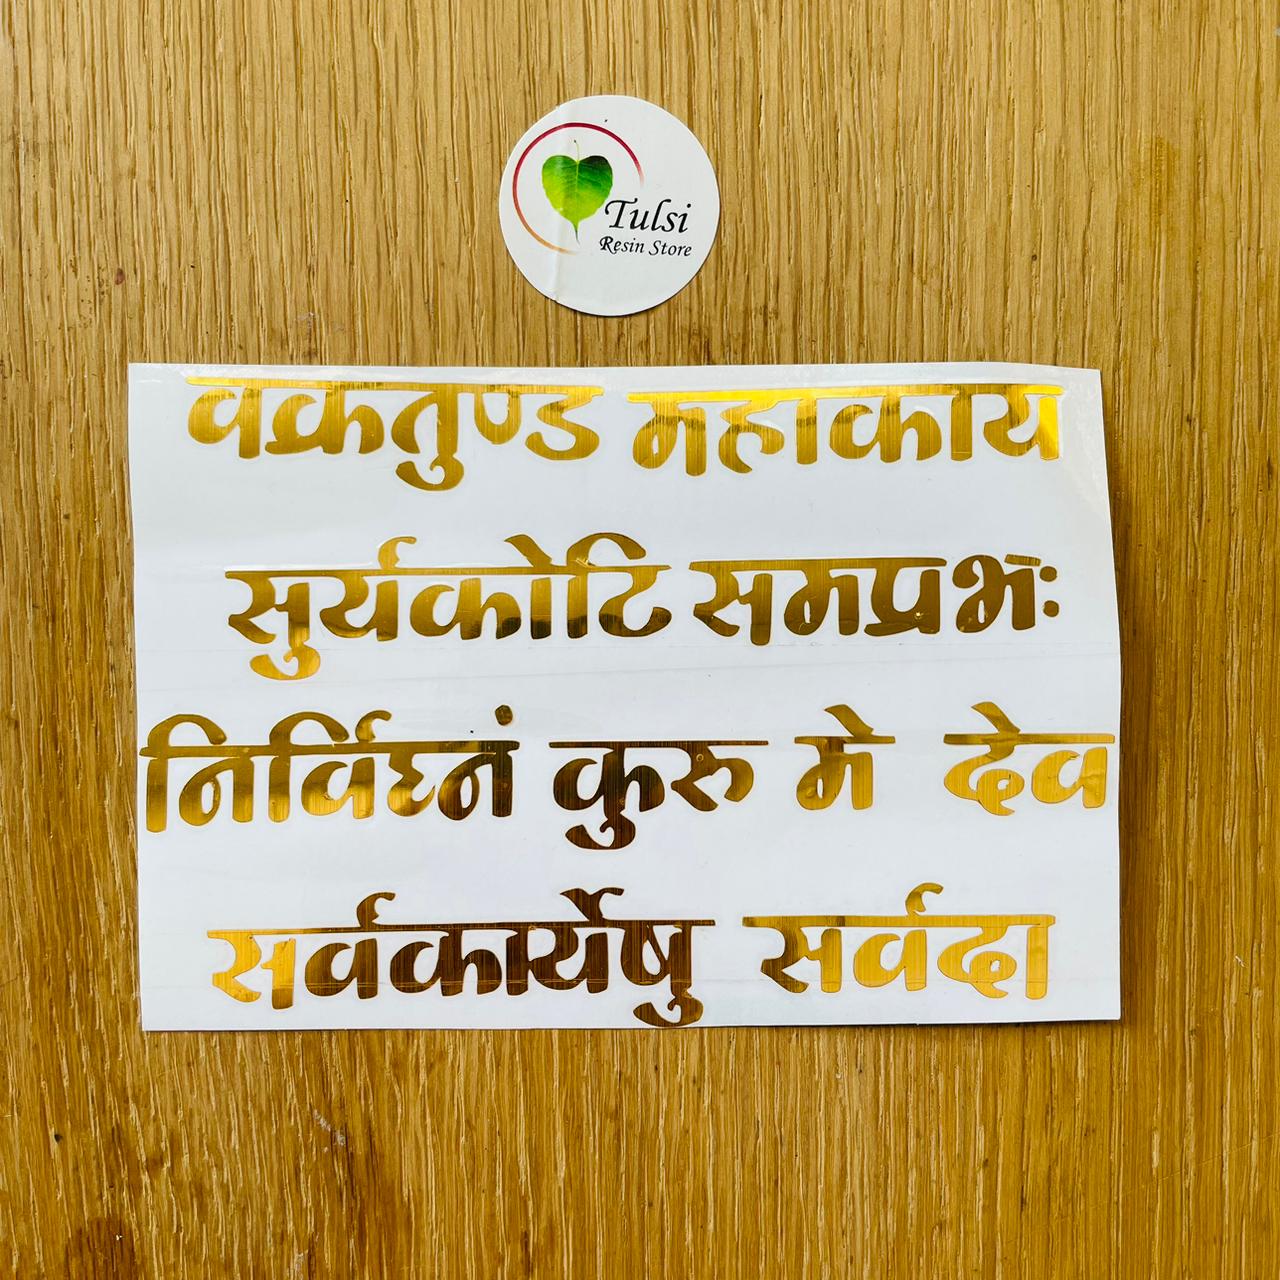 Tulsi
Resin Store
वक्रतुण्ड महाकाय
सुर्यकोटि समप्रभः
निर्विघ्नं कुरु मे देव
सर्वकार्येषु सर्वदा